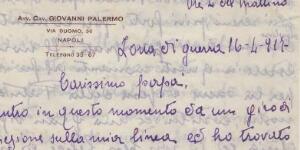 Avv. Cav. GIOVANNI PALERMO
VIA DUOMO, 50
NAPOLI
TELEFONO 33-67
Zona di guerra 16-4-917-
Carissimo papà,
in questo momento da un giro di
sulla mia linea ed ho trovato